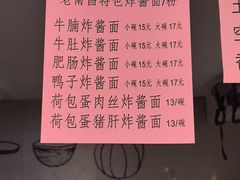 老南昌特色炸酱面/粉
牛腩炸酱面 小碗15元 大碗17元
牛肚炸酱面 小碗15元 大碗17元
肥肠炸酱面 小碗15元 大碗17元
鸭子炸酱面 小碗15元 大碗17元
荷包蛋肉丝炸酱面 13/碗
荷包蛋猪肝炸酱面 13/碗